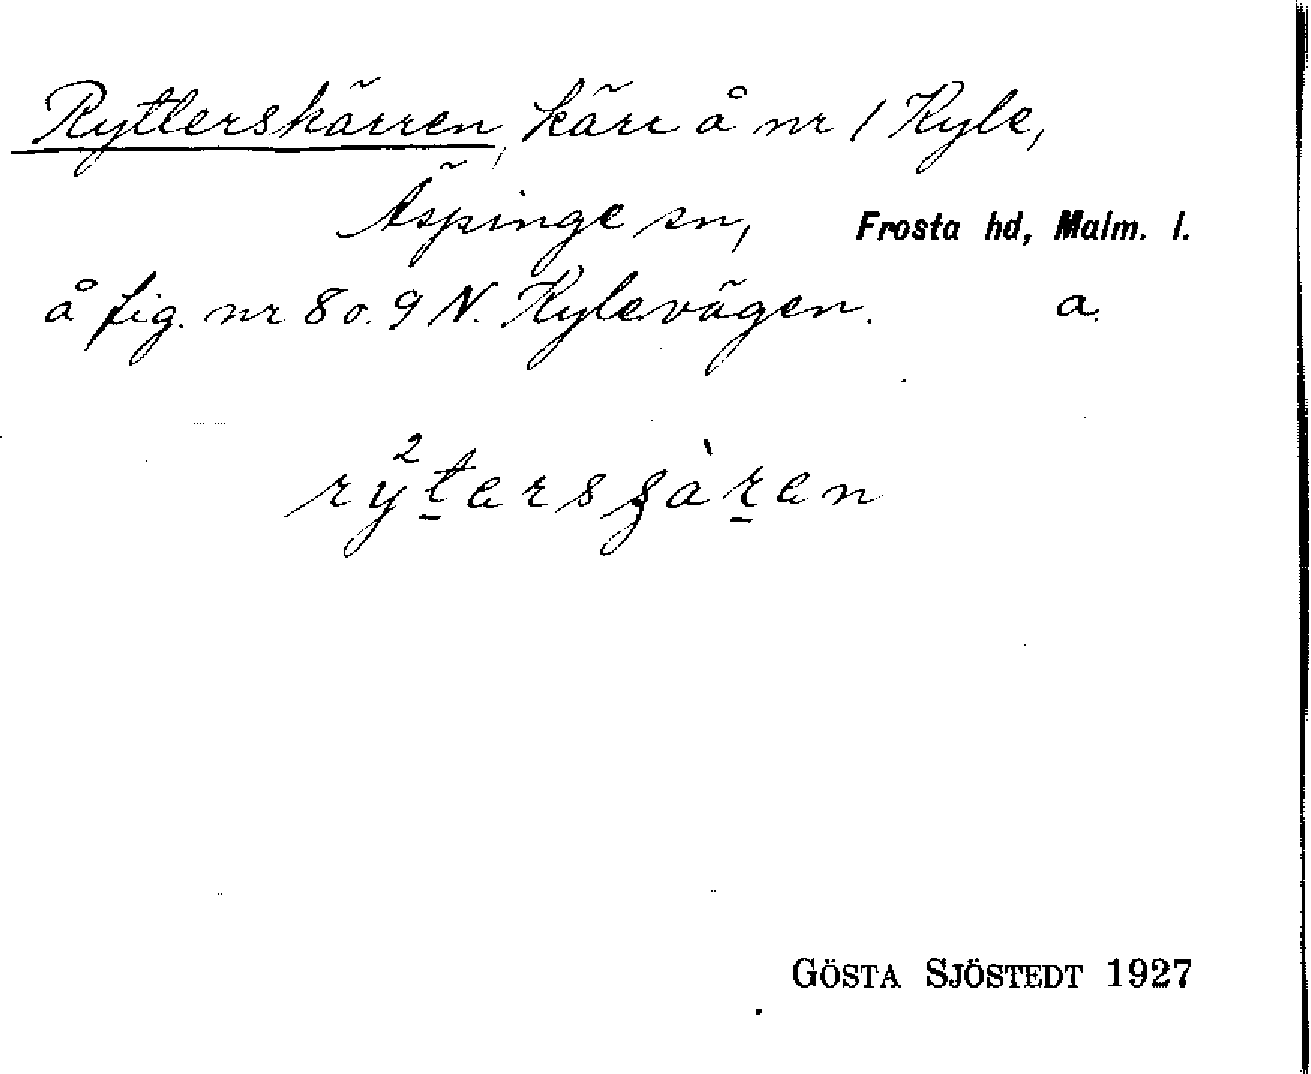 Rytterskärren, kärr å nr 1 Kyle,
Äspinge sn, Frosta hd, Malm. l.
å fig. nr 8 o. 9 N. Kylevägen. a.
GÖSTA SJÖSTEDT 1927